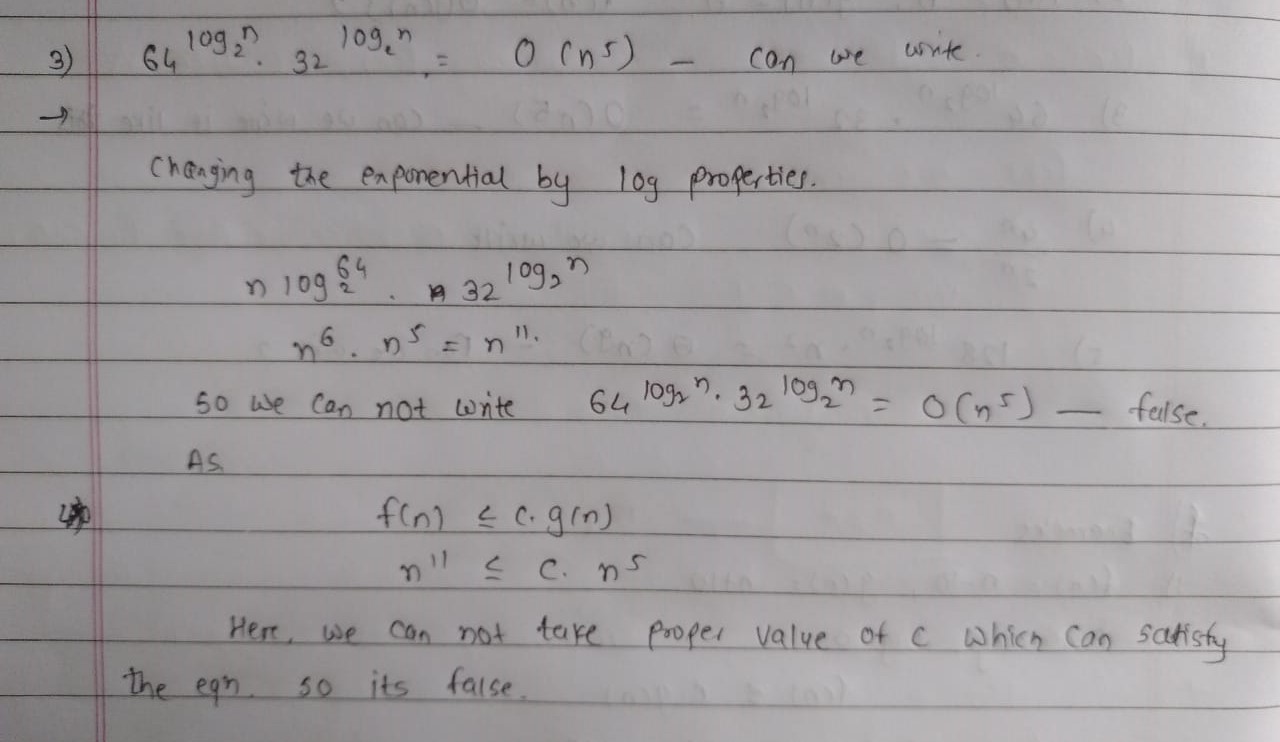 3) 64^log₂n . 32^log₂n = O(n⁵) — can we write.
→
Changing the exponential by log properties.
n log₂64 . 32^log₂n
n⁶ . n⁵ = n¹¹.
So we can not write 64^log₂n . 32^log₂n = O(n⁵) — false.
As
f(n) ≤ c. g(n)
n¹¹ ≤ c. n⁵
Here, we can not take proper value of c which can satisfy
the eqn. so its false.